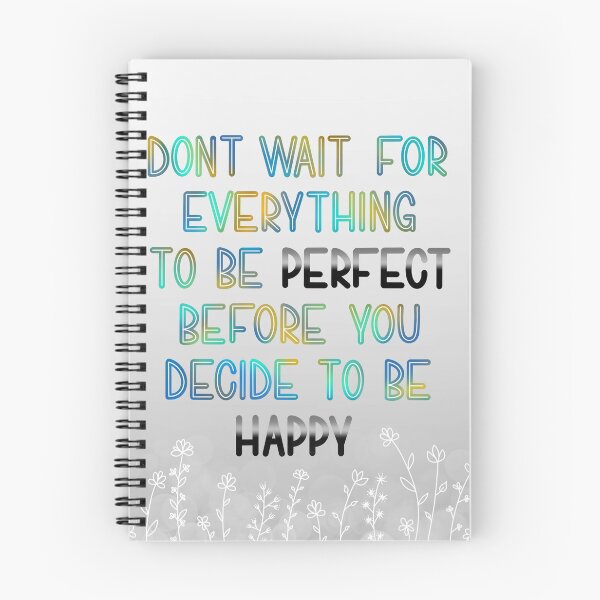 DONT WAIT FOR
EVERYTHING
TO BE PERFECT
BEFORE YOU
DECIDE TO BE
HAPPY